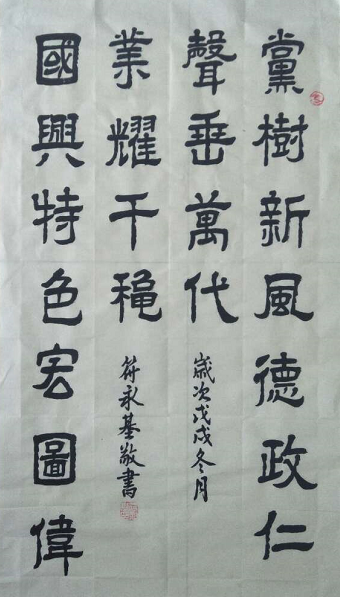 黨樹新風德政仁
聲垂萬代
歲次戊戌冬月
國興特色宏圖偉
業耀千穐
符永基敬書